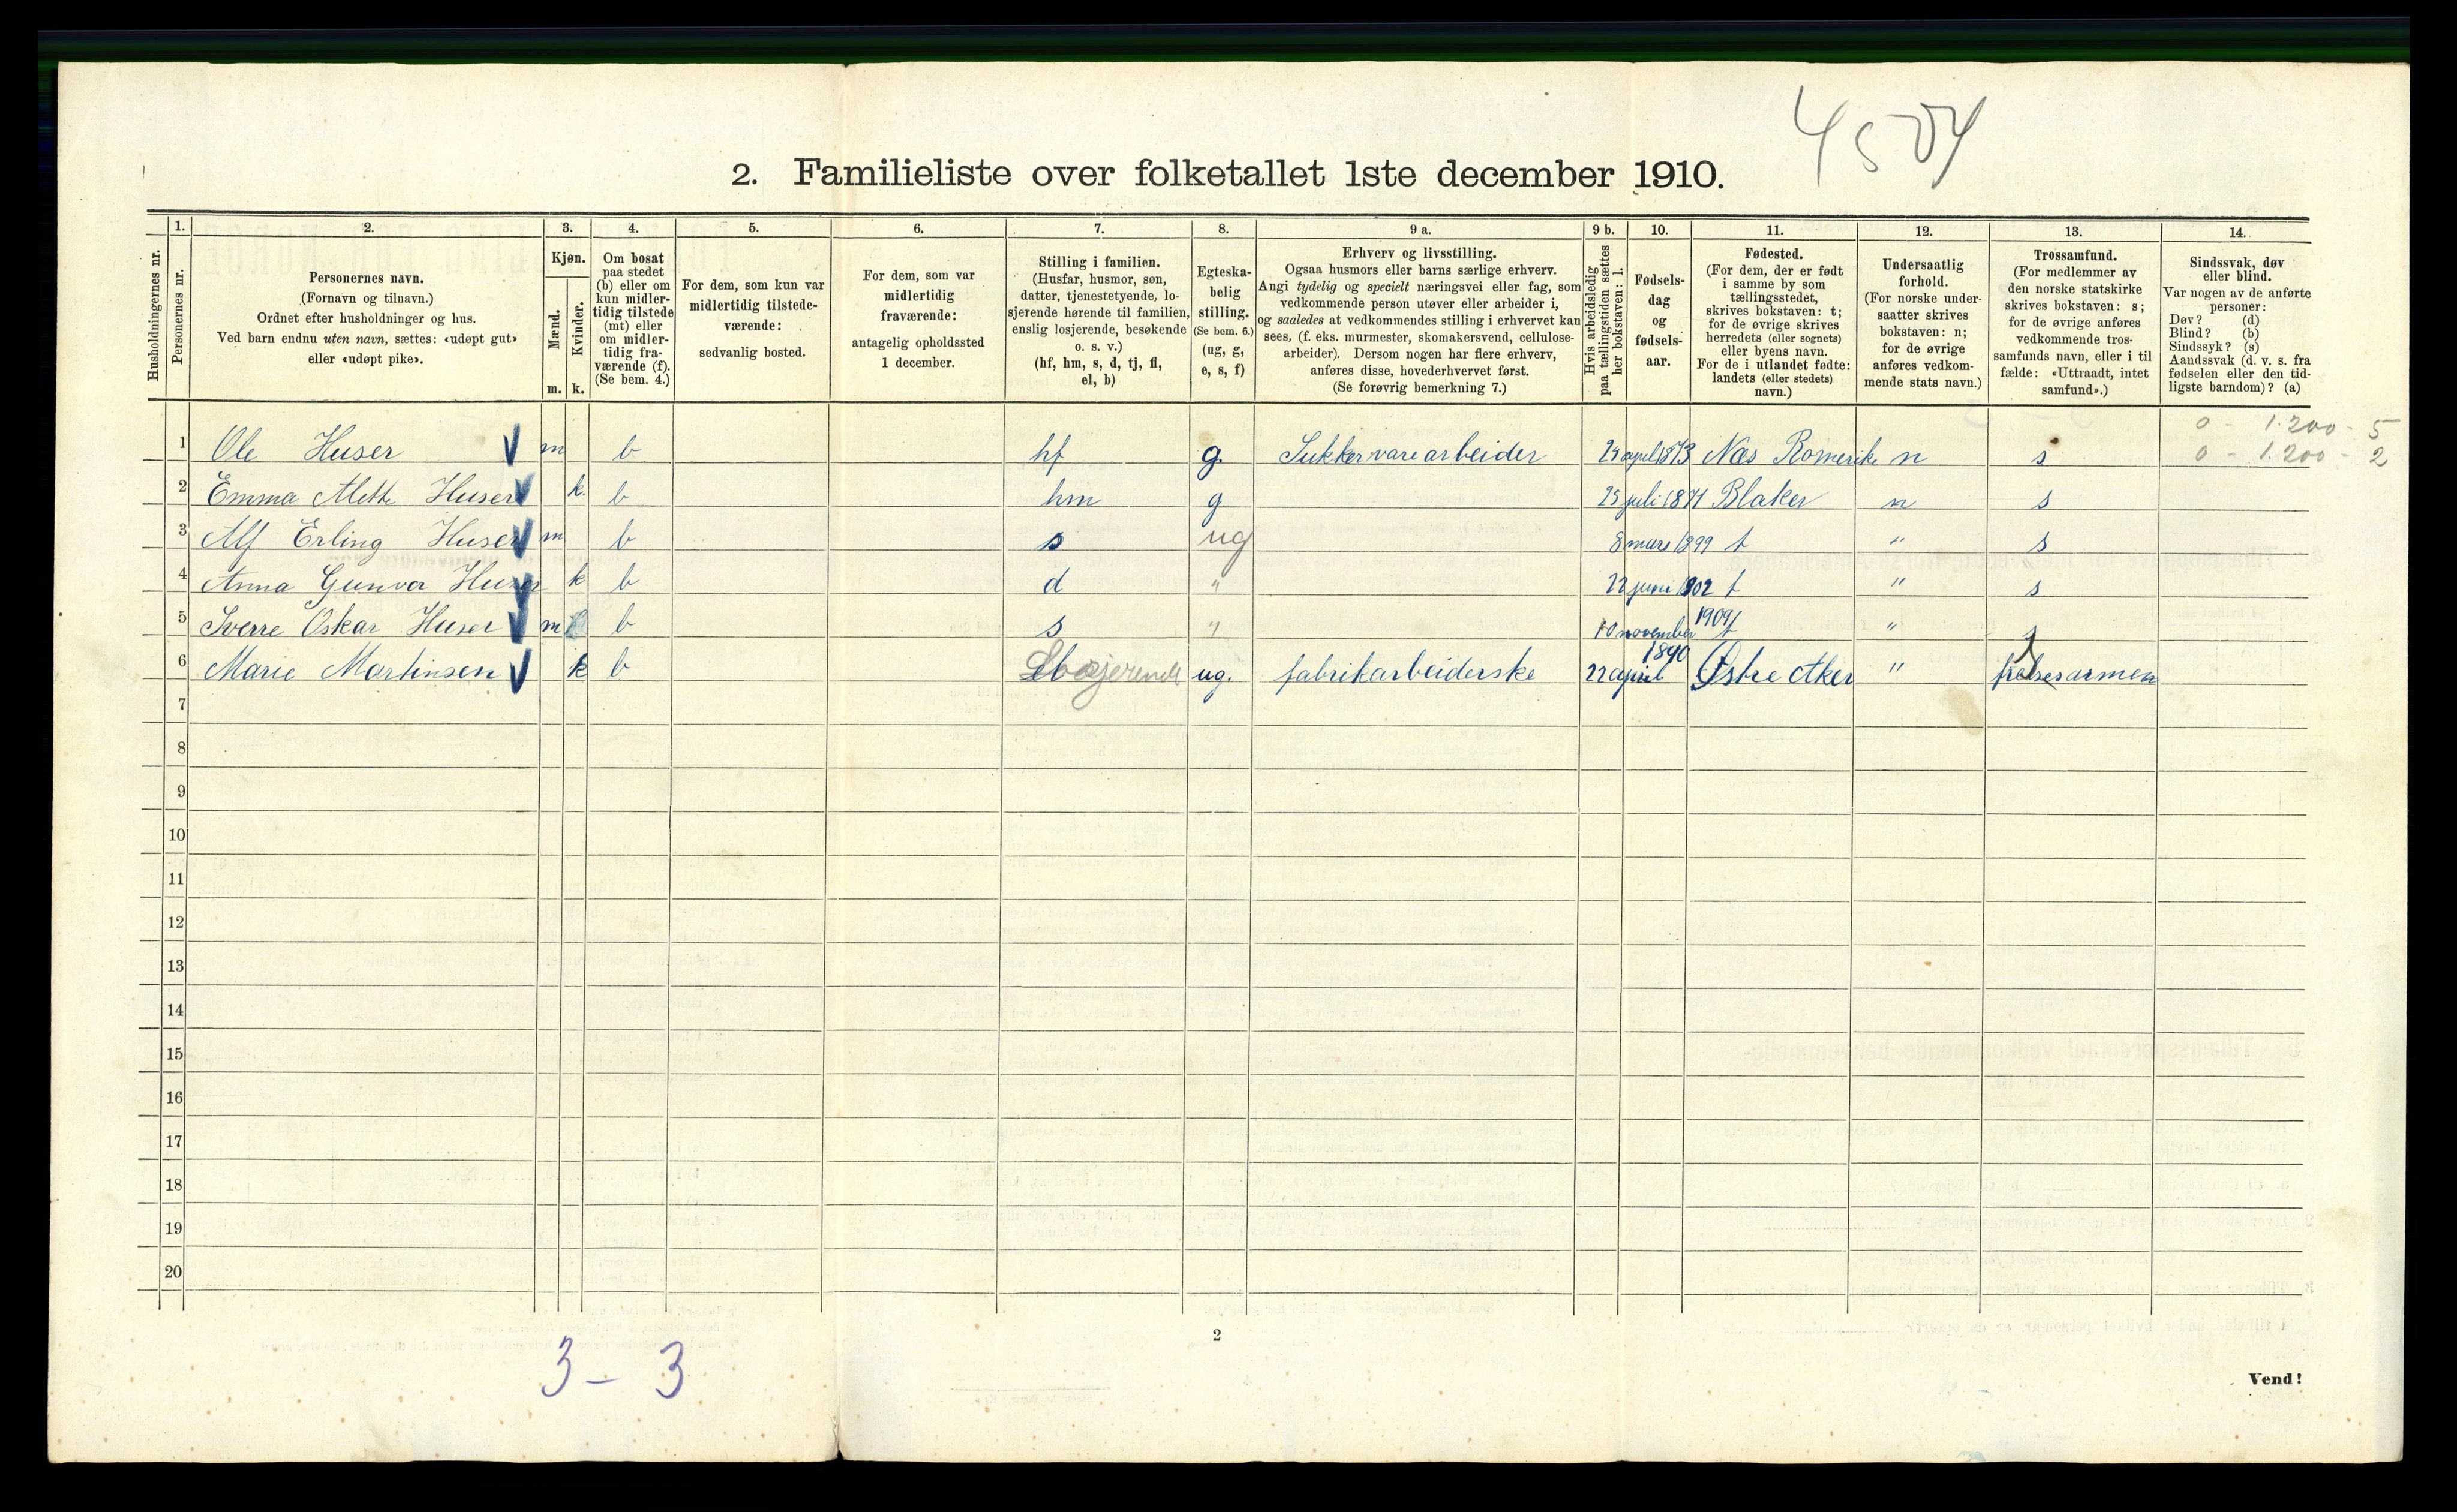 4504
2. Familieliste over folketallet 1ste december 1910.
1. 2. 3. 4. 5. 6. 7. 8. 9 a. 9 b. 10. 11. 12. 13. 14.
Husholdningernes nr.
Personernes nr.
Personernes navn.
(Fornavn og tilnavn.)
Ordnet efter husholdninger og hus.
Ved barn endnu uten navn, sættes: «udøpt gut»
eller «udøpt pike».
Kjøn.
Mænd.
Kvinder.
m. k.
Om bosat
paa stedet
(b) eller om
kun midler-
tidig tilstede
(mt) eller
om midler-
tidig fra-
værende (f).
(Se bem. 4.)
For dem, som kun var
midlertidig tilstede-
værende:
sedvanlig bosted.
For dem, som var
midlertidig
fraværende:
antagelig opholdssted
1 december.
Stilling i familien.
(Husfar, husmor, søn,
datter, tjenestetyende, lo-
sjerende hørende til familien,
enslig losjerende, besøkende
o. s. v.)
(hf, hm, s, d, tj, fl,
el, b)
Egteska-
belig
stilling.
(Se bem. 6.)
(ug, g,
e, s, f)
Erhverv og livsstilling.
Ogsaa husmors eller barns særlige erhverv.
Angi tydelig og specielt næringsvei eller fag, som
vedkommende person utøver eller arbeider i,
og saaledes at vedkommendes stilling i erhvervet kan
sees, (f. eks. murmester, skomakersvend, cellulose-
arbeider). Dersom nogen har flere erhverv,
anføres disse, hovederhvervet først.
(Se forøvrig bemerkning 7.)
Hvis arbeidsledig
paa tællingstiden sættes
her bokstaven: l.
Fødsels-
dag
og
fødsels-
aar.
Fødested.
(For dem, der er født
i samme by som
tællingsstedet,
skrives bokstaven: t;
for de øvrige skrives
herredets (eller sognets)
eller byens navn.
For de i utlandet fødte:
landets (eller stedets)
navn.)
Undersaatlig
forhold.
(For norske under-
saatter skrives
bokstaven: n;
for de øvrige
anføres vedkom-
mende stats navn.)
Trossamfund.
(For medlemmer av
den norske statskirke
skrives bokstaven: s;
for de øvrige anføres
vedkommende tros-
samfunds navn, eller i til
fælde: «Uttraadt, intet
samfund».)
Sindssvak, døv
eller blind.
Var nogen av de anførte
personer:
Døv? (d)
Blind? (b)
Sindssyk? (s)
Aandssvak (d. v. s. fra
fødselen eller den tid-
ligste barndom)? (a)
0 - 1.200 - 5
0 - 1.200 - 2
1 Ole Huser m b hf g. Sukkervarearbeider april 1873 Næs Romerike n s
2 Emma Mette Huser k. b hm g 25 juli 1871 Blaker n s
3 Alf Erling Huser m b s ug 8 mars 1899 t " s
4 Anna Gunvor Huser k b d " 22 juni 1902 t " s
5 Sverre Oskar Huser m b s " 10 november 1909 t " s
6 Marie Martinsen k b losjerende ug. fabrikarbeiderske 22 april 1890 Østre Aker " frelsesarmen
7
8
9
10
11
12
13
14
15
16
17
18
19
20
2
3 - 3
Vend!